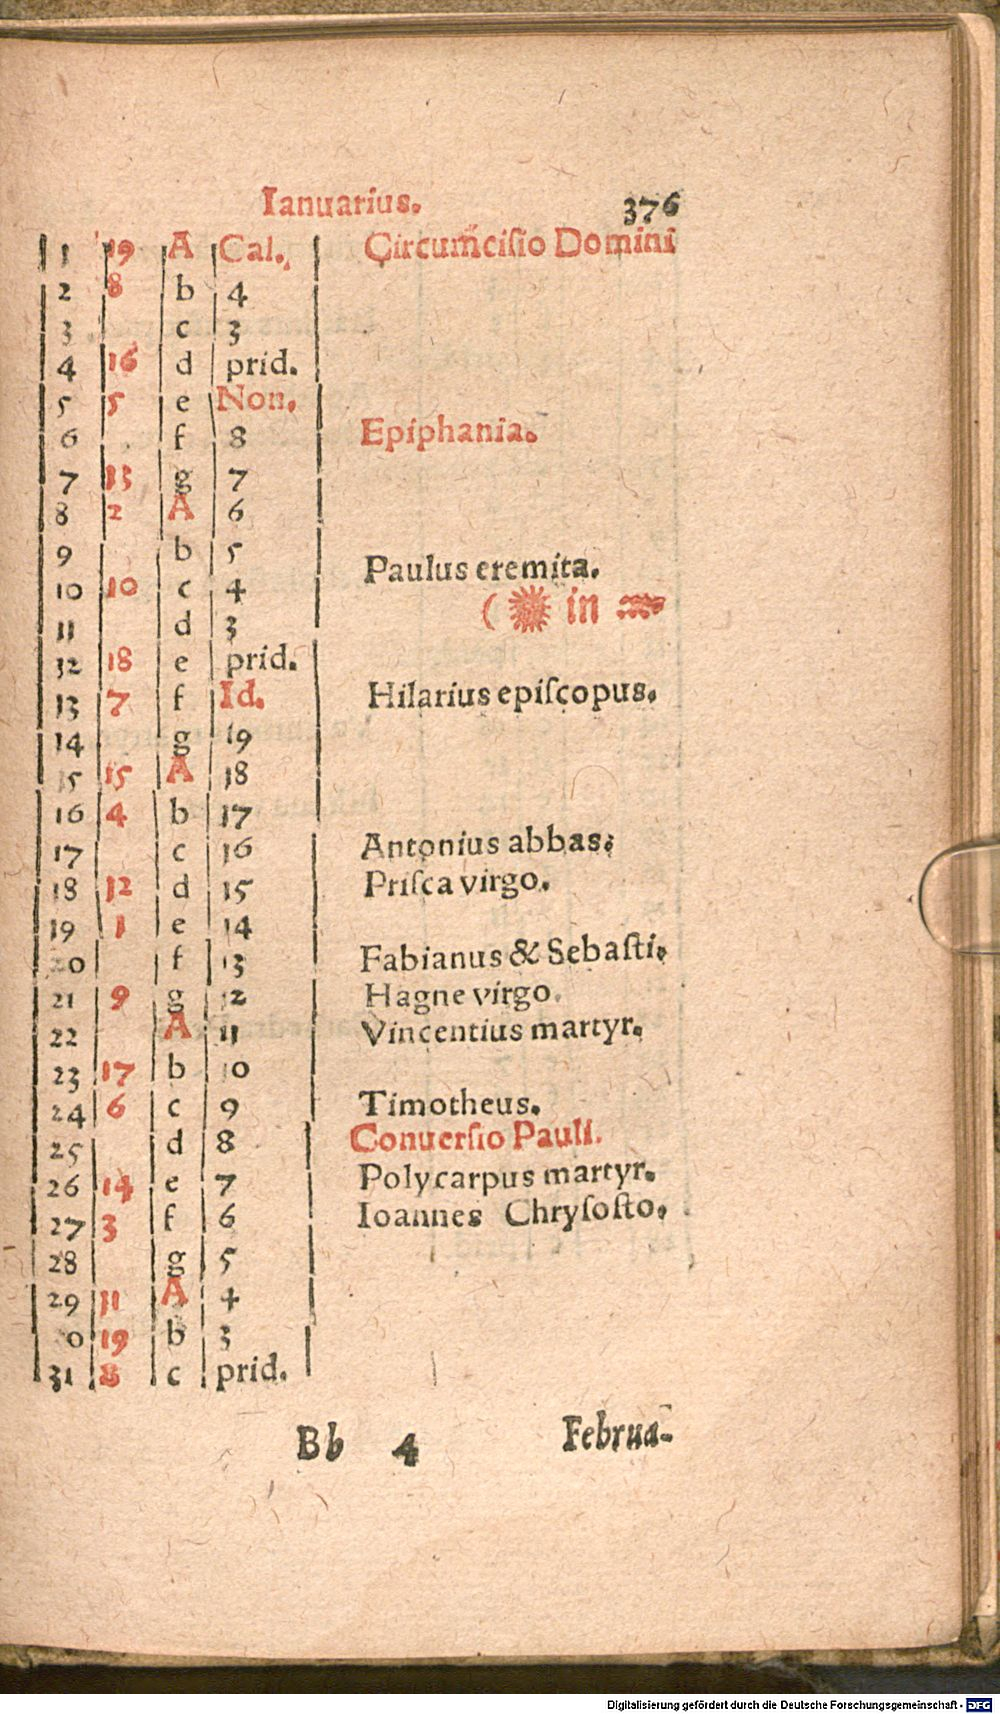 Ianuarius. 376
1 19 A Cal. Circumcisio Domini
2 8 b 4
3 c 3
4 16 d prid.
5 5 e Non.
6 f 8 Epiphania.
7 13 g 7
8 2 A 6
9 b 5
10 10 c 4 Paulus eremita.
11 d 3 ( ☀ in ♒
12 18 e prid.
13 7 f Id. Hilarius epiſcopus.
14 g 19
15 15 A 18
16 4 b 17
17 c 16 Antonius abbas.
18 12 d 15 Priſca virgo.
19 1 e 14
20 f 13 Fabianus & Sebaſti.
21 9 g 12 Hagne virgo.
22 A 11 Vincentius martyr.
23 17 b 10
24 6 c 9 Timotheus.
25 d 8 Conuerſio Pauli.
26 14 e 7 Polycarpus martyr.
27 3 f 6 Ioannes Chryſoſto.
28 g 5
29 11 A 4
0 19 b 3
31 8 c prid.
Bb 4 Februa-
Digitalisierung gefördert durch die Deutsche Forschungsgemeinschaft - DFG